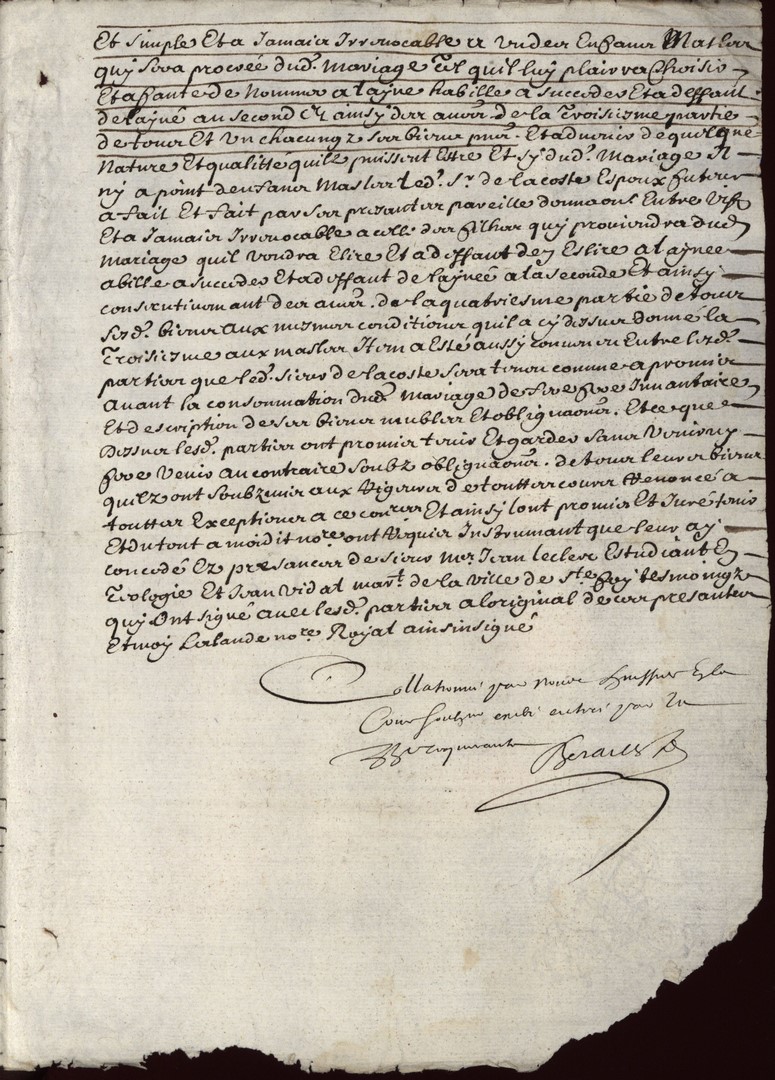 Et simple Et a Jamais Irrevocable a un des Enfans Maslas
quy sera procreé dud. Mariage tel quil luy plairra Choisir
Et a faute de Nommer a layné habille a succeder Et a deffaut
de layné au second Et ainsy des autr. de la Troisiesme partie
de tous Et un chacungz ses biens pns. Et advenir de quelque
Nature Et qualitte quils puissent Estre Et sy dud. Mariage Il
ny a point denfans Maslas led. Sr. de lacoste Espoux futeur
a fait Et fait par ses presantes pareille donnaon Entre vifz
Et a Jamais Irrevocable a celle des filhes quy proviendra dud
Mariage quil voudra Elire Et a deffaut dey Eslire a laynee
abille a succeder Et a deffaut de layneé a la seconde Et ainsy
consecutivemant des autr. de la quatriesme partie de tous
sesd. biens aux mesmes conditions quil a cy dessus donne la
Troisiesme aux maslas Item a Esté aussy convenu Entre lesd.
parties que led. sieur de lacoste sera tenu comme a promis
avant la consommation dud. Mariage de fere fere Inventaire
Et description de ses biens meubles Et obligaons. Et ce que
Dessus lesd. parties ont promis tenir Et garder sans venir ny
fere venir au contraire soubz obligaons. de tous leurs biens
quilz ont soubzmis aux Rigueurs de touttes cours Renoncé a
touttes Exceptions a ce conres Et ainsy lont promis Et Juré tenir
Et du tout a moidit nore ont Requis Instrumant que leur ay
concedé Ez presances de sieurs Mer. Jean leclerc Estudiant En
Teologie Et Jean Vidal mart. de la ville de Ste foy tesmoingz
quy Ont signé avec lesd. parties a loriginal de ces presantes
Et moy Lalande nore. Royal ainsin signé
Collationné par nous huissier En la
Cour
Requerante Berail